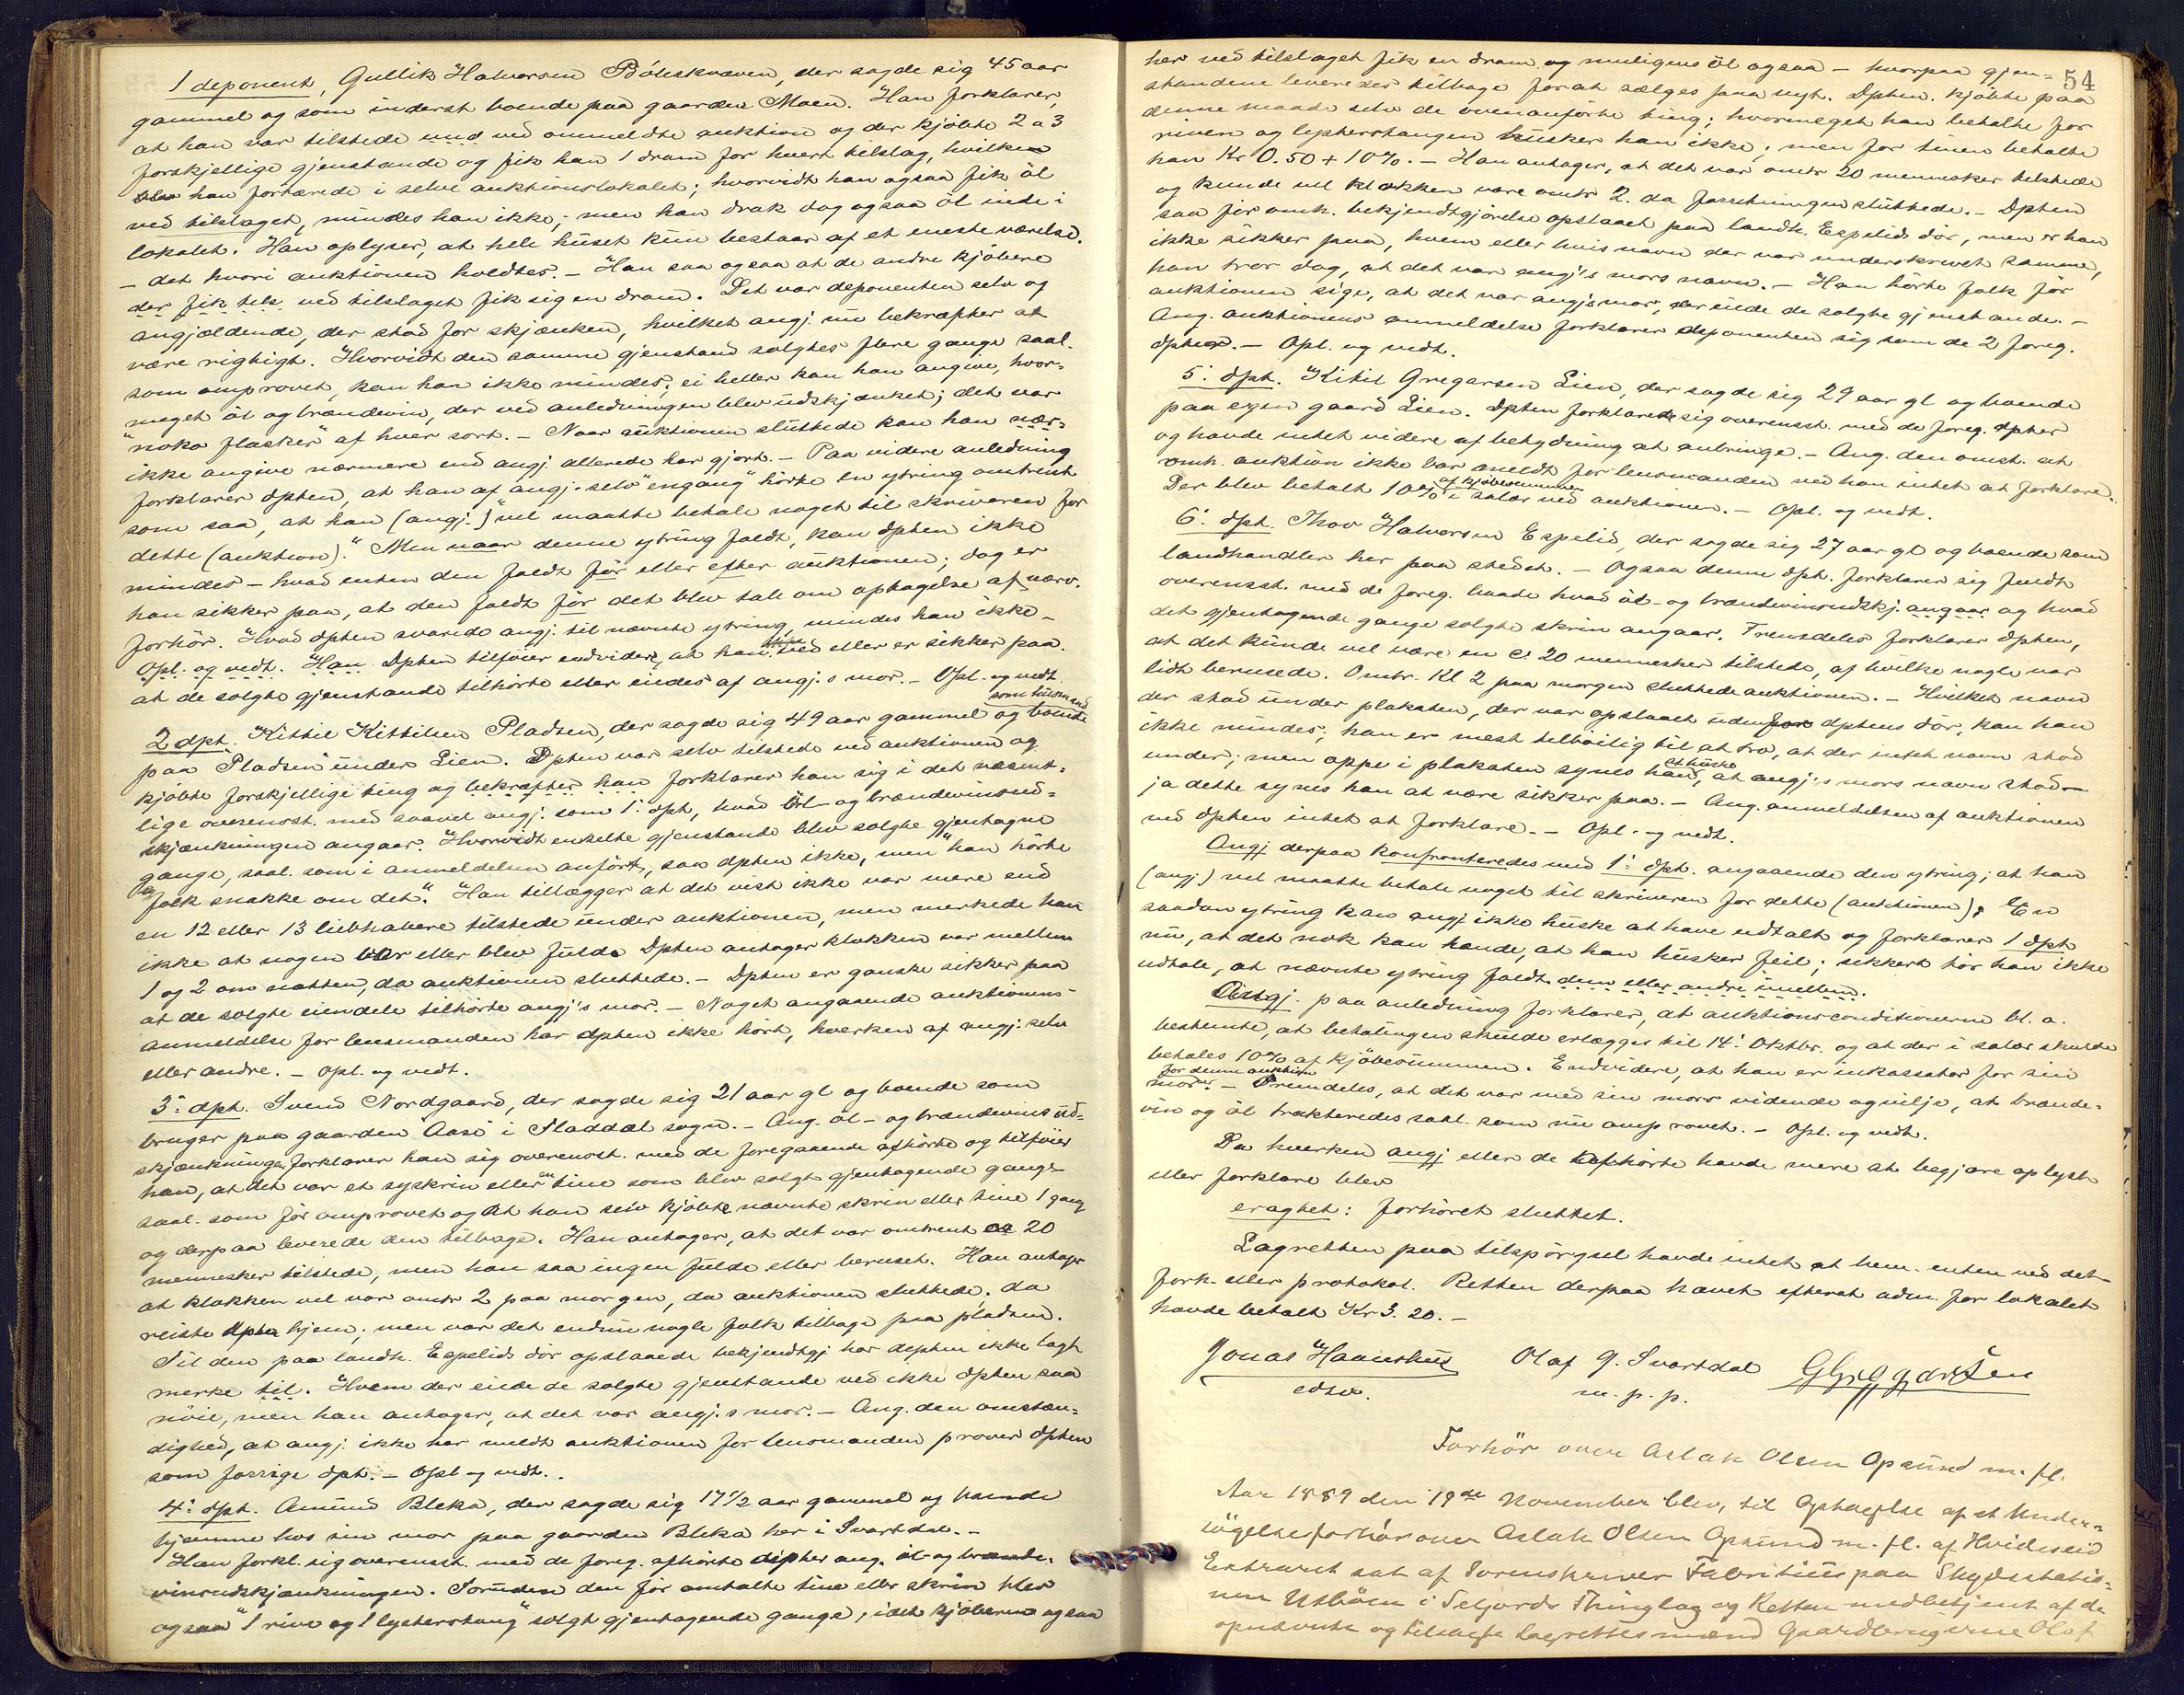 1 deponent, Gullik Halvorsen Böleskveven, der sagde sig 45 aar
gammel og som inderst boende paa gaarden Moen. Han forklarer,
at han var tilstede ved ommeldte auktion og der kjöbte 2 a 3
forskjellige gjenstande og fik han 1 dram for hvert tilslag, hvilken
han fortærede i selve auktionslokalet; hvorvidt han ogsaa fik öl
ved tilslaget, mindes han ikke; men han drak dog ogsaa öl inde i
lokalet. Han oplyser, at hele huset kun bestaar af et eneste værelse,
– det hvori auktionen holdtes. – Han saa ogsaa at de andre kjöbere
der fik tils ved tilslaget fik sig en dram. Det var deponenten selv og
angjældende, der stod for skjænken, hvilket angj: nu bekræfter at
være rigtigt. Hvorvidt den samme gjenstand solgtes flere gange saal.
som omprovet, kan han ikke mindes; ei heller kan han angive, hvor-
meget öl og brændevin, der ved anledningen blev udskjænket; det var
"noko flasker" af hver sort. – Naar auktionen sluttede kan han nær-
ikke angive nærmere end angj. allerede har gjort. – Paa videre anledning
forklarer dpten, at han af angj. selv "engang" hörte en ytring omtrent
som saa, at han (angj.) "vel maatte betale noget til skriveren for
dette (auktion)." Men naar denne ytring faldt, kan dpten ikke
mindes – hvad enten den faldt för eller efter auktionen; dog er
han sikker paa, at den faldt för det blev tale om optagelse af nærv.
forhör. Hvad dpten svarede angj. til nævnte ytring, mindes han ikke –
Opl. og vedt. Han Dpten tilföier endvidere, at han ikke ved eller er sikker paa.
at de solgte gjenstande tilhörte eller eiedes af angj.s mor. – Opl. og vedt.
2 dpt. Kittil Kittilsen Pladsen, der sagde sig 49 aar gammel og boende som husmand
paa Pladsen under Lien. Dpten var selv tilstede ved auktionen og
kjöbte forskjellige ting og bekræfter han forklarer han sig i det væsent-
lige overensst. med saavel angj: som 1: dpt, hvad öl- og brændevinsud-
skjænkningen angaar. Hvorvidt enkelte gjenstande blev solgte gjentagne
gange, saal. som i anmeldelsen anfört, saa dpten ikke, men "han hörte
folk snakke om det". Han tillægger at det vist ikke var mere end
en 12 eller 13 liebhabere tilstede under auktionen, men merkede han
ikke at nogen var eller blev fulde. Dpten antager klokken var mellem
1 og 2 om natten, da auktionen sluttede. – Dpten er ganske sikker paa
at de solgte eiendele tilhörte angj's mor. – Noget angaaende auktionens
anmeldelse for lensmanden har dpten ikke hört, hverken af angj. selv
eller andre. – Opl. og vedt.
3: dpt. Svend Nordgaard, der sagde sig 21 aar gl og boende som
bruger paa gaarden Aase i Fladdal sogn. – Ang. öl- og brændevinsud-
skjænkningen forklarer han sig overensst. med de foregaaende afhörte og tilföier
han, at det var et syskrin eller en tine som blev solgt gjentagende gange
saal. som för omprovet og at han selv kjöbte nævnte skrin eller tine 1 gang
og derpaa leverede den tilbage. Han antager, at det var omtrent 20
mennesker tilstede, men han saa ingen fulde eller beruset. Han antager
at klokken vel var omtr 2 paa morgen, da auktionen sluttede; da
reiste dpten hjem; men var det endnu nogle folk tilbage paa pladsen.
Til den paa landh. Espelids dör opslaaede bekjendtgj har dpten ikke lagt
merke til. Hvem der eiede de solgte gjenstande ved ikke dpten saa
nöie, men han antager, at det var angj.s mor. – Ang. den omstæn-
dighed, at angj. ikke har meldt auktionen for lensmanden prover dpten
som forrige dpt. – Opl og vedt.
4: dpt. Amund Bleka, der sagde sig 17½ aar gammel og boende
hjemme hos sin mor paa gaarden Bleka her i Svartdal. –
Han forkl. sig overensst. med de foreg. afhörte dpter ang. öl- og brænde-
vinsudskjænkningen. Foruden den för omtalte tine eller skrin blev
ogsaa "1 rive og 1 lysterstang" solgt gjentagende gange, idet kjöberen ogsaa
54
her ved tilslaget fik en dram, og muligens öl ogsaa – hvorpaa gjen-
standene leveredes tilbage forat sælges paa nyt. Dpten. kjöbte paa
denne maade selv de ovenanförte ting; hvormeget han betalte for
riven og lysterstangen husker han ikke; men for tinen betalte
han Kr 0.50 + 10%. – Han antager, at det var omtr 20 mennesker tilstede
og kunde vel klokken være omtr 2. da forretningen sluttede. – Dpten
saa för omh. bekjendtgjörelse opslaaet paa landh. Espelids dör, men er han
ikke sikker paa, hvem eller hvis navn der var underskrevet samme,
han tror dog, at det var angj's mors navn. – Han hörte folk för
auktionen sige, at det var angj's mor, der eiede de solgte gjenstande. –
Ang. auktionens anmeldelse forklarer deponenten sig som de 2 foreg.
dpter. – Opl. og vedt.
5: dpt. Kittil Gregarsen Lien, der sagde sig 29 aar gl og boende
paa egen gaard Lien. Dpten forklarede sig overensst. med de foreg. dpter
og havde intet videre af betydning at anbringe. – Ang. den omst. at
omh. auktion ikke var meldt for lensmanden ved han intet at forklare.
Der blev betalt 10% af kjöbesummen i salær ved auktionen. – Opl. og vedt.
6: dpt. Thov Halvorsen Espelid, der sagde sig 27 aar gl og boende som
landhandler her paa stedet. – Ogsaa denne dpt. forklarer sig fuldt
overensst. med de foreg. baade hvad öl- og brændevinsudskj. angaar og hvad
det gjentagende gange solgte skrin angaar. Fremdeles forklarer dpten,
at det kunde vel være en c: 20 mennesker tilstede, af hvilke nogle var
lidt berusede. Omtr. Kl 2 paa morgen sluttede auktionen. – Hvilket navn
der stod under plakaten, der var opslaaet udenfor dptens dör, kan han
ikke mindes; han er mest tilböilig til at tro, at der intet navn stod
under; men oppe i plakaten synes han at huske, at angj.s mors navn stod –
ja dette synes han at være sikker paa. – Ang. anmeldelsen af auktionen
ved dpten intet at forklare. – Opl. og vedt.
Angj derpaa konfronteredes med 1: dpt. angaaende den ytring, at han
(angj.) vel maatte betale noget til skriveren for dette (auktionen). En
saadan ytring kan angj. ikke huske at have udtalt og forklarer 1 dpt
nu, at det nok kan hænde, at han husker feil; sikkert tör han ikke
udtale, at nævnte ytring faldt dem eller andre imellem.
Angj. paa anledning forklarer, at auktionsconditionerne bl. a.
bestemte, at betalingen skulde erlægges til 14: Oktbr. og at der i salær skulde
betales 10% af kjöbesummen. Endvidere, at han er inkassator for sin
mor for denne auktion. – Fremdeles, at det var med sin mors vidende og vilje, at brænde-
vin og öl trakteredes saal. som nu omprovet. – Opl. og vedt.
Da hverken angj eller de afhörte havde mere at begjære oplyst
eller forklare blev
eragtet: forhöret sluttet.
Lagretten paa tilspörgsel havde intet at bem. enten ved det
forh. eller protokol. Retten derpaa hævet efterat adm. for lokalet
havde betalt Kr 3. 20. –
Jonas Hanneshus Olaf G. Svartdal G Greggarsen
edsv. m. p. p.
Forhör over Aslak Olsen Opsund m. fl.
Aar 1889 den 19de November blev, til Optagelse af et Under-
sögelsesforhör over Aslak Olsen Opsund m. fl. af Hvideseid
Extraret sat af Sorenskriver Fabritius paa Skydsstatio-
nen Utböen i Seljords Thinglag og Retten medbetjent af de
opnævnte og tilsagte Lagrettesmænd Gaardbrugerne Olaf